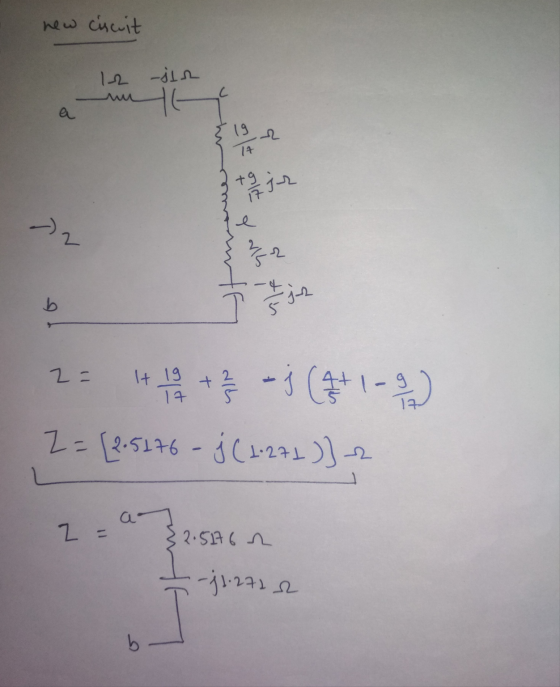 new circuit
1Ω -j1Ω
a
c
19/17 Ω
+9/17 jΩ
e
→ Z
2/5 Ω
-4/5 jΩ
b
Z = 1+ 19/17 + 2/5 - j (4/5 + 1 - 9/17)
Z = [2.5176 - j(1.271)] Ω
Z = a
2.5176 Ω
-j1.271 Ω
b